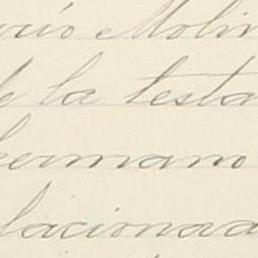 ario Molin
de la testa
hermano
lacionad